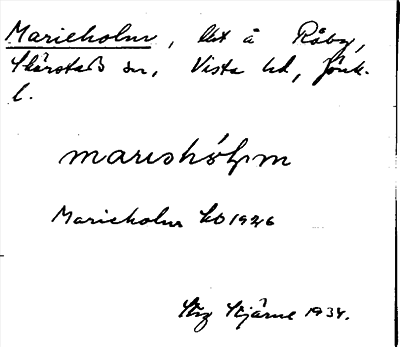 Marieholm, lht å Råby,
Skärstads sn, Vista hd, Jönk.
l.
marishólm
Marieholm kb 1926
Stig Stjärne 1934.